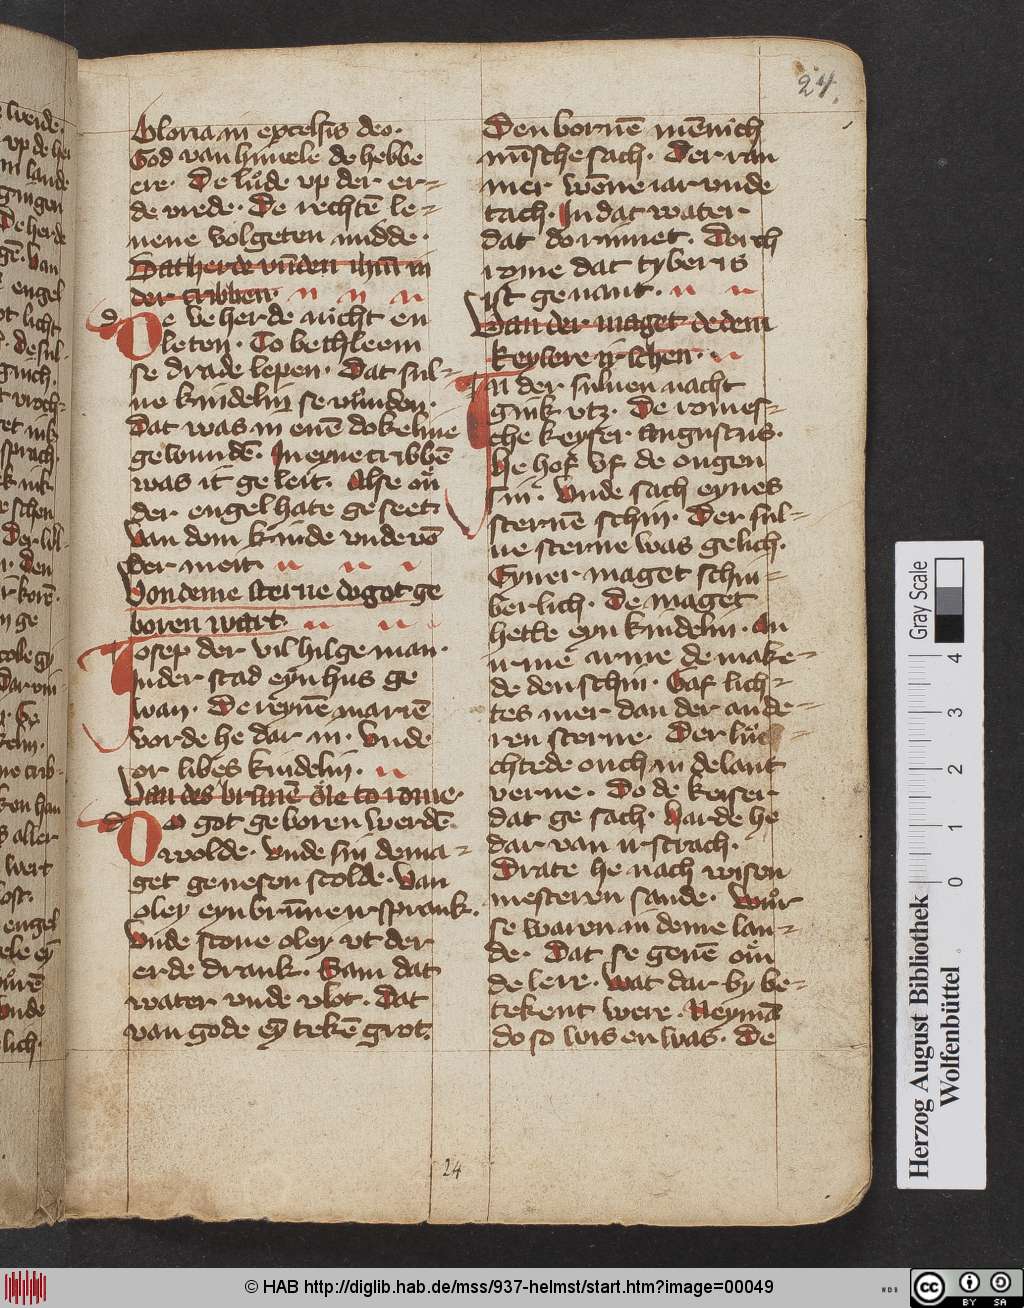 24.
Gloria in excelsis deo.
God van himele de hebbe
ere. De lůde vp der er-
de vrede. De rechtē le-
uene volgeten midde.
Dat herde vūden ihm̄ in
der cribben
De ve herde nicht en
leten. To bethleem
se drade lepen. Dat sul-
ue kindelin se vůnden.
Dat was in enē dokeline
gewundē. In eyne cribbē
was it geleit. Alse on̄
der engel hate geseet
Van dom kinde vnde vō
der meit
Von deme sterne do got ge
boren wart.
Josep der vil hilge man.
In der stad eyn hus ge
wan. De reynē mariē
vorde he dar in. Vnde
or libes kindelin.
Van des brunē ole to rome.
Do got geboren werdē
wolde. Vnde sin de ma-
get genesen scolde. Van
oley eyn brūne ir sprank.
Vnde scone oley vt der
erde drank. Sam dat
water vnde vlot. Dat
van gode eȳ tekē grot.
Den bornē mēnich
mīsche sach. Der ran
mer wēne iar vnde
tach. In dat water
dat do rinnet. Dorch
rome dat tyberis
ist genant.
Van der maget de dem
keysere irschen.
In der suluen nacht
gink vtz. De romes-
che keyser augustus.
He hof vf de ougen
sin. Vnde sach eynes
sternē schin. Der sul-
ue sterne was gelich.
Eyner maget schin-
berlich. De maget
hette eyn kindelin. An
irme arme de make-
de den schin. Gaf lich-
tes mer dan der ande-
ren sterne. Der lůe
chtede ouch in de lant
verne. Do de keiser
dat ge sach. Harde he
dar van irscrach.
Drate he nach wisen
mesteren sande. Wůr
se waren in deme lan-
de. Dat se genē on̄
de lere. Wat dar by be-
tekent were. Neymā
do so wis en was. De
24
Herzog August Bibliothek
Wolfenbüttel
Gray Scale
0 1 2 3 4
© HAB http://diglib.hab.de/mss/937-helmst/start.htm?image=00049
cc BY SA